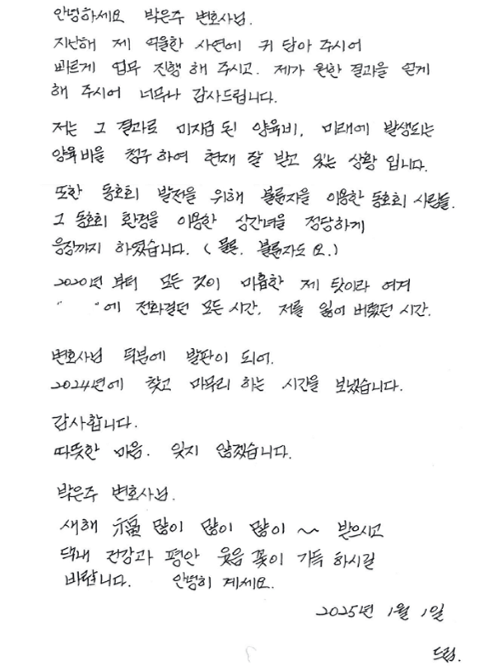 안녕하세요 박은주 변호사님.
지난해 제 억울한 사연에 귀 담아 주시어
빠르게 업무 진행 해 주시고. 제가 원한 결과을 얻게
해 주시어 너무나 감사드립니다.
저는 그 결과로 미지급 된 양육비, 미래에 발생되는
양육비을 청구 하여 현재 잘 받고 있는 상황 입니다.
또한 동호회 발전을 위해 불륜자을 이용한 동호회 사람들.
그 동호회 환경을 이용한 상간녀을 정당하게
응징까지 하였습니다. ( 물론. 불륜자도 요.)
2020년 부터 모든 것이 미흡한 제 탓이라 여겨
" "에 전화걸던 모든 시간, 저를 잃어 버렸던 시간.
변호사님 덕분에 발판이 되어.
2024년에 찾고 마무리 하는 시간을 보냈습니다.
감사합니다.
따뜻한 마음. 잊지 않겠습니다.
박은주 변호사님.
새해 福 많이 많이 많이 ~ 받으시고
댁내 건강과 평안 웃음 꽃이 가득 하시길
바랍니다. 안녕히 계세요.
2025년 1월 1일
드림.